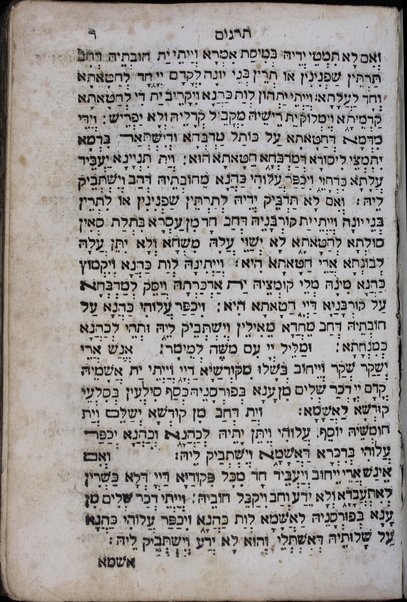 תרגום
ואם לא תמטי ידיה במיסת אמרא וייתי ית חובתיה דחב
תרתין שפנינין או תרין בני יונה לקדם יי חד לחטאתא
וחד לעלתא: וייתי יתהון לות כהנא ויקריב ית די לחטאתא
קדמיתא וימלוק ית רישיה מקביל קדליה ולא יפריש: וידי
מדמא דחטאתא על כותל מדבחא ודישתאר בדמא
יתמצי ליסודא דמדבחא חטאתא הוא: וית תניינא יעביד
עלתא כדחזי ויכפר עלוהי כהנא מחובתיה דחב וישתביק
ליה: ואם לא תדביק ידיה לתרתין שפנינין או לתרין
בני יונה וייתי ית קורבניה דחב חד מן עסרא בתלת סאין
סולתא לחטאתא לא ישוי עלה משחא ולא יתן עלה
לבונתא ארי חטאתא היא: וייתינה לות כהנא ויקמוץ
כהנא מינה מלי קומציה ית אדכרתה ויסק למדבחא
על קורבניא דיי חטאתא היא: ויכפר עלוהי כהנא על
חובתיה דחב מחדא מאילין וישתביק ליה ותהי לכהנא
כמנחתא: ומליל יי עם משה למימר: אנש ארי
ישקר שקר ויחוב בשלו מקודשיא דיי וייתי ית אשמיה
קדם יי דכר שלים מן ענא בפורסניה כסף סלעין בסלעי
קודשא לאשמא: וית דחב מן קודשא ישלם וית
חומשיה יוסף עלוהי ויתן יתיה לכהנא וכהנא יכפר
עלוהי בדכרא דאשמא וישתביק ליה: ואם
אינש ארי יחוב ויעביד חד מכל פקודיא דיי דלא כשרין
לאתעבדא ולא ידע וחב ויקבל חוביה: וייתי דכר שלים מן
ענא בפורסניה לאשמא לות כהנא ויכפר עלוהי כהנא
על שלותיה דאשתלי והוא לא ידע וישתביק ליה:
אשמא